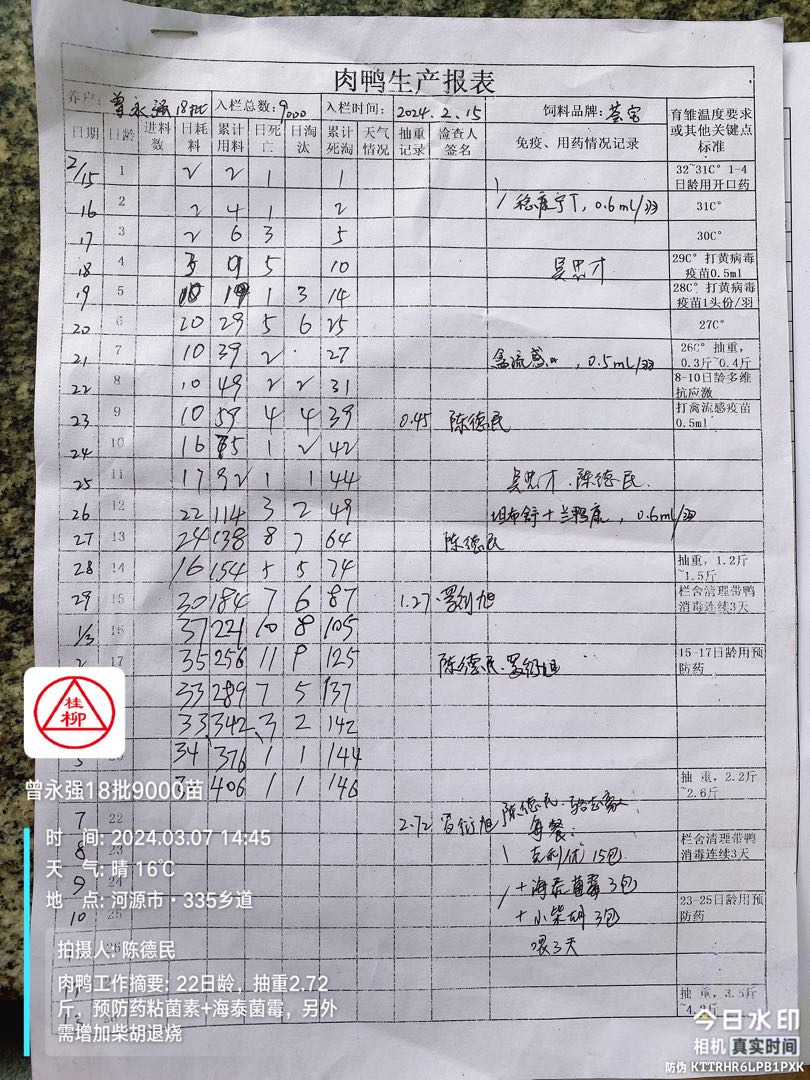 肉鸭生产报表
养户: 曾永强18批 入栏总数: 9000 入栏时间: 2024.2.15 饲料品牌:
育雏温度要求或其他关键点标准
日期 日龄 进料数 日耗料 累计用料 日死亡 日淘汰 累计死淘 天气情况 抽重记录 检查人签名 免疫、用药情况记录
2/15 1 2 2 1 1 32~31C° 1-4日龄用开口药
16 2 2 4 1 2 0.6ml/羽 31C°
17 3 2 6 3 5 30C°
18 4 9 5 10 吴忠才 29C° 打黄病毒疫苗0.5ml
19 5 19 1 3 14 28C° 打黄病毒疫苗1头份/羽
20 6 20 29 5 6 25 27C°
21 7 10 39 2 27 禽流感 , 0.5ml/羽 26C° 抽重,0.3斤~0.4斤
22 8 10 49 2 2 31 8-10日龄多维抗应激
23 9 10 59 4 4 39 0.45 陈德民 打禽流感疫苗0.5ml
24 10 16 75 1 2 42
25 11 17 92 1 1 44 吴忠才.陈德民.
26 12 22 114 3 2 49 0.6ml/羽
27 13 24 138 8 7 64 陈德民
28 14 16 154 5 5 74 抽重,1.2斤~1.5斤
29 15 30 184 7 6 87 1.27 栏舍清理带鸭消毒连续3天
1/3 16 37 221 10 8 105
2 17 35 256 11 9 125 陈德民. 15-17日龄用预防药
33 289 7 5 137
33 342 3 2 142
34 376 1 1 144
406 1 1 146 抽重,2.2斤~2.6斤
7 22 2.72 陈德民.
每餐:
8 23 15包 栏舍清理带鸭消毒连续3天
9 24 +海泰菌霉3包
10 25 +小柴胡3包 23-25日龄用预防药
26 喂3天
抽重,3.5斤
桂柳
曾永强18批9000苗
时 间: 2024.03.07 14:45
天 气: 晴 16℃
地 点: 河源市·335乡道
拍摄人: 陈德民
肉鸭工作摘要: 22日龄，抽重2.72
斤，预防药粘菌素+海泰菌霉，另外
需增加柴胡退烧
今日水印
相机 真实时间
防伪 KTTRHR6LPB1PXK